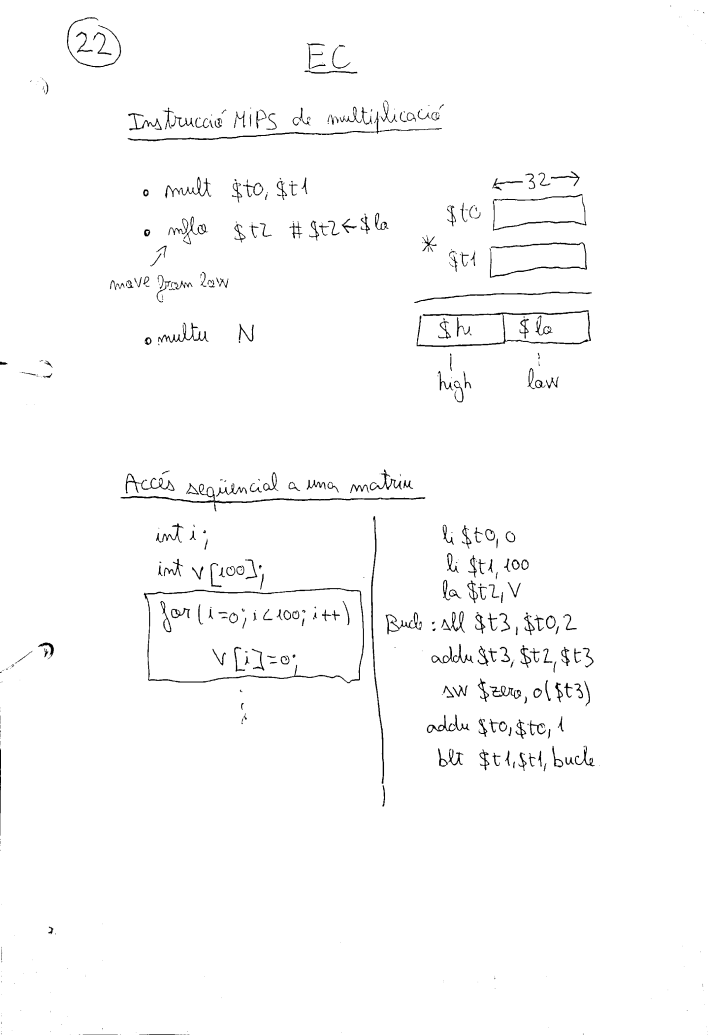 22
EC
Instrucció MIPS de multiplicació
mult $t0, $t1
mflo $t2 # $t2 ← $lo
move from low
multu N
32
$t0
* $t1
$hi $lo
high low
Accés seqüencial a una matriu
int i;
int V[100];
for (i=0; i<100; i++)
V[i]=0;
li $t0, 0
li $t1, 100
la $t2, V
Bucle: sll $t3, $t0, 2
addu $t3, $t2, $t3
sw $zero, 0($t3)
addu $t0, $t0, 1
blt $t1, $t1, bucle